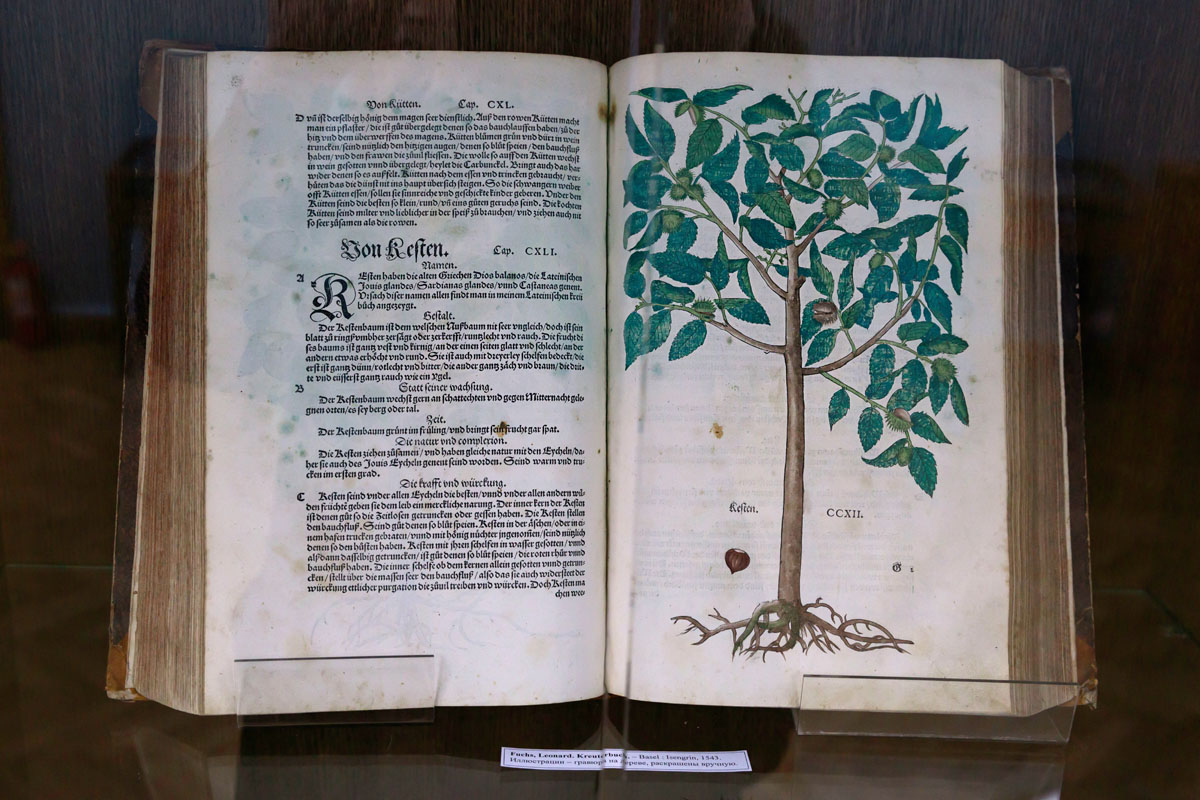 Von Kütten. Cap. CXL.
D vñ ist derselbig hönig dem magen seer dienstlich. Auß den rowen Kütten macht
man ein pflaster / die ist gůt übergelegt denen so das bauchlauffen haben / zů der
hitz vnd dem überwerffen des magens. Kütten blůmen grün vnd dürr in wein
truncken / seind nützlich den hitzigen augen / denen so blůt speien / den bauchfluß
haben / vnd den frawen die zůuil fliessen. Die wolle so auff den Kütten wechst
in wein gesotten vnd übergelegt / heylet die Carbunckel. Bringt auch das har
wider denen so es außfelt. Kütten nach dem essen vnd trincken gebraucht / ver-
hüten das die dünst nit ins haupt übersich steigen. So die schwangern weiber
offt Kütten essen / sollen sie sinnreiche vnd geschickte kinder geberen. Vnder den
Kütten seind die besten so klein / rund / vñ eins gůten geruchs seind. Die kochten
Kütten seind milter vnd lieblicher in der speiß zů brauchen / vnd ziehen auch nit
so seer zůsamen als die rowen.
Von Kesten. Cap. CXLI.
Namen.
A KEsten haben die alten Griechen Dios balanos / die Lateinischen
Jouis glandes / Sardianas glandes / vnnd Castaneas genent.
Vrsach diser namen allen findt man in meinem Lateinischen kreü
bůch angezeygt.
Gestalt.
Der Kestenbaum ist dem welschen Nußbaum nit seer vngleich / doch ist sein
blatt zů ringß vmbher zersägt oder zerkerfft / runtzlecht vnd rauch. Die frucht di
ses baums ist gantz vest vnd kirnig / an der einen seiten glatt vnd schlecht / an der
andern etwas erhöcht vnd rund. Sie ist auch mit dreyerley schelfen bedeckt / die
erst ist gantz dünn / rotlecht vnd bitter / die ander gantz zäch vnd braun / die drit-
te vnd eüsserst gantz rauch wie ein ygel.
B Statt seiner wachsung.
Der Kestenbaum wechst gern an schattechten vnd gegen Mitternacht gele-
gnen orten / es sey berg oder tal.
Zeit.
Der Kestenbaum grünt im früling / vnd bringt sein frucht gar spat.
Die natur vnd complexion.
Die Kesten ziehen zůsamen / vnd haben gleiche natur mit den Eycheln / da-
her sie auch des Jouis Eycheln genent seind worden. Seind warm vnd tru-
cken im ersten grad.
Die krafft vnd würckung.
C Kesten seind vnder allen Eycheln die besten / vnnd vnder allen andern wil-
den früchtē geben sie dem leib ein merckliche narung. Der inner kern der Kesten
ist denen gůt so die Zeitlosen getruncken oder gessen haben. Die Kesten stellen
den bauchfluß. Seind gůt denen so blůt speien. Kesten in der äschen / oder in ei-
nem hafen trucken gebraten / vnnd mit hönig nüchter ingenom̃en / seind nützlich
denen so den hůsten haben. Kesten mit jhren schelfen in wasser gesotten / vnnd
alßdann dasselbig getruncken / ist gůt denen so blůt speien / die roten rhůr vnnd
bauchfluß haben. Die inner schelfe ob dem kernen allein gesotten vnnd getrun-
cken / stellt über die massen seer den bauchfluß / also das sie auch widersteet der
würckung ettlicher purgation die zůuil treiben vnd würcken. Doch Kesten ma
chen wee
Kesten. CCXII.
G
Fuchs, Leonard. Kreuterbuch. – Basel : Isengrin, 1543.
Иллюстрации – гравюра на дереве, раскрашены вручную.